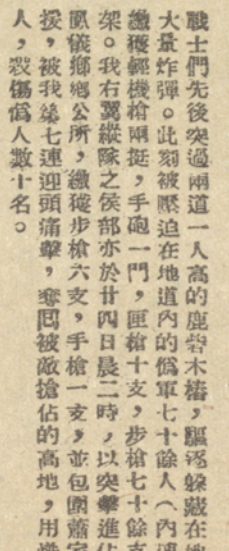 戰士們先後突過兩道一人高的鹿砦木樁，驅逐躲藏在地
大量炸彈。此刻被壓迫在地道內的僞軍七十餘人（內
繳獲輕機槍兩挺，手砲一門，匣槍十支，步槍七十餘支
架。我右翼縱隊之侯部亦於廿四日晨二時，以突擊進佔
儀鄉鄉公所，繳獲步槍六支，手槍一支，並包圍蕭家
援，被我第七連迎頭痛擊，奪回被敵搶佔的高地，用
人，殺傷僞人數十名。